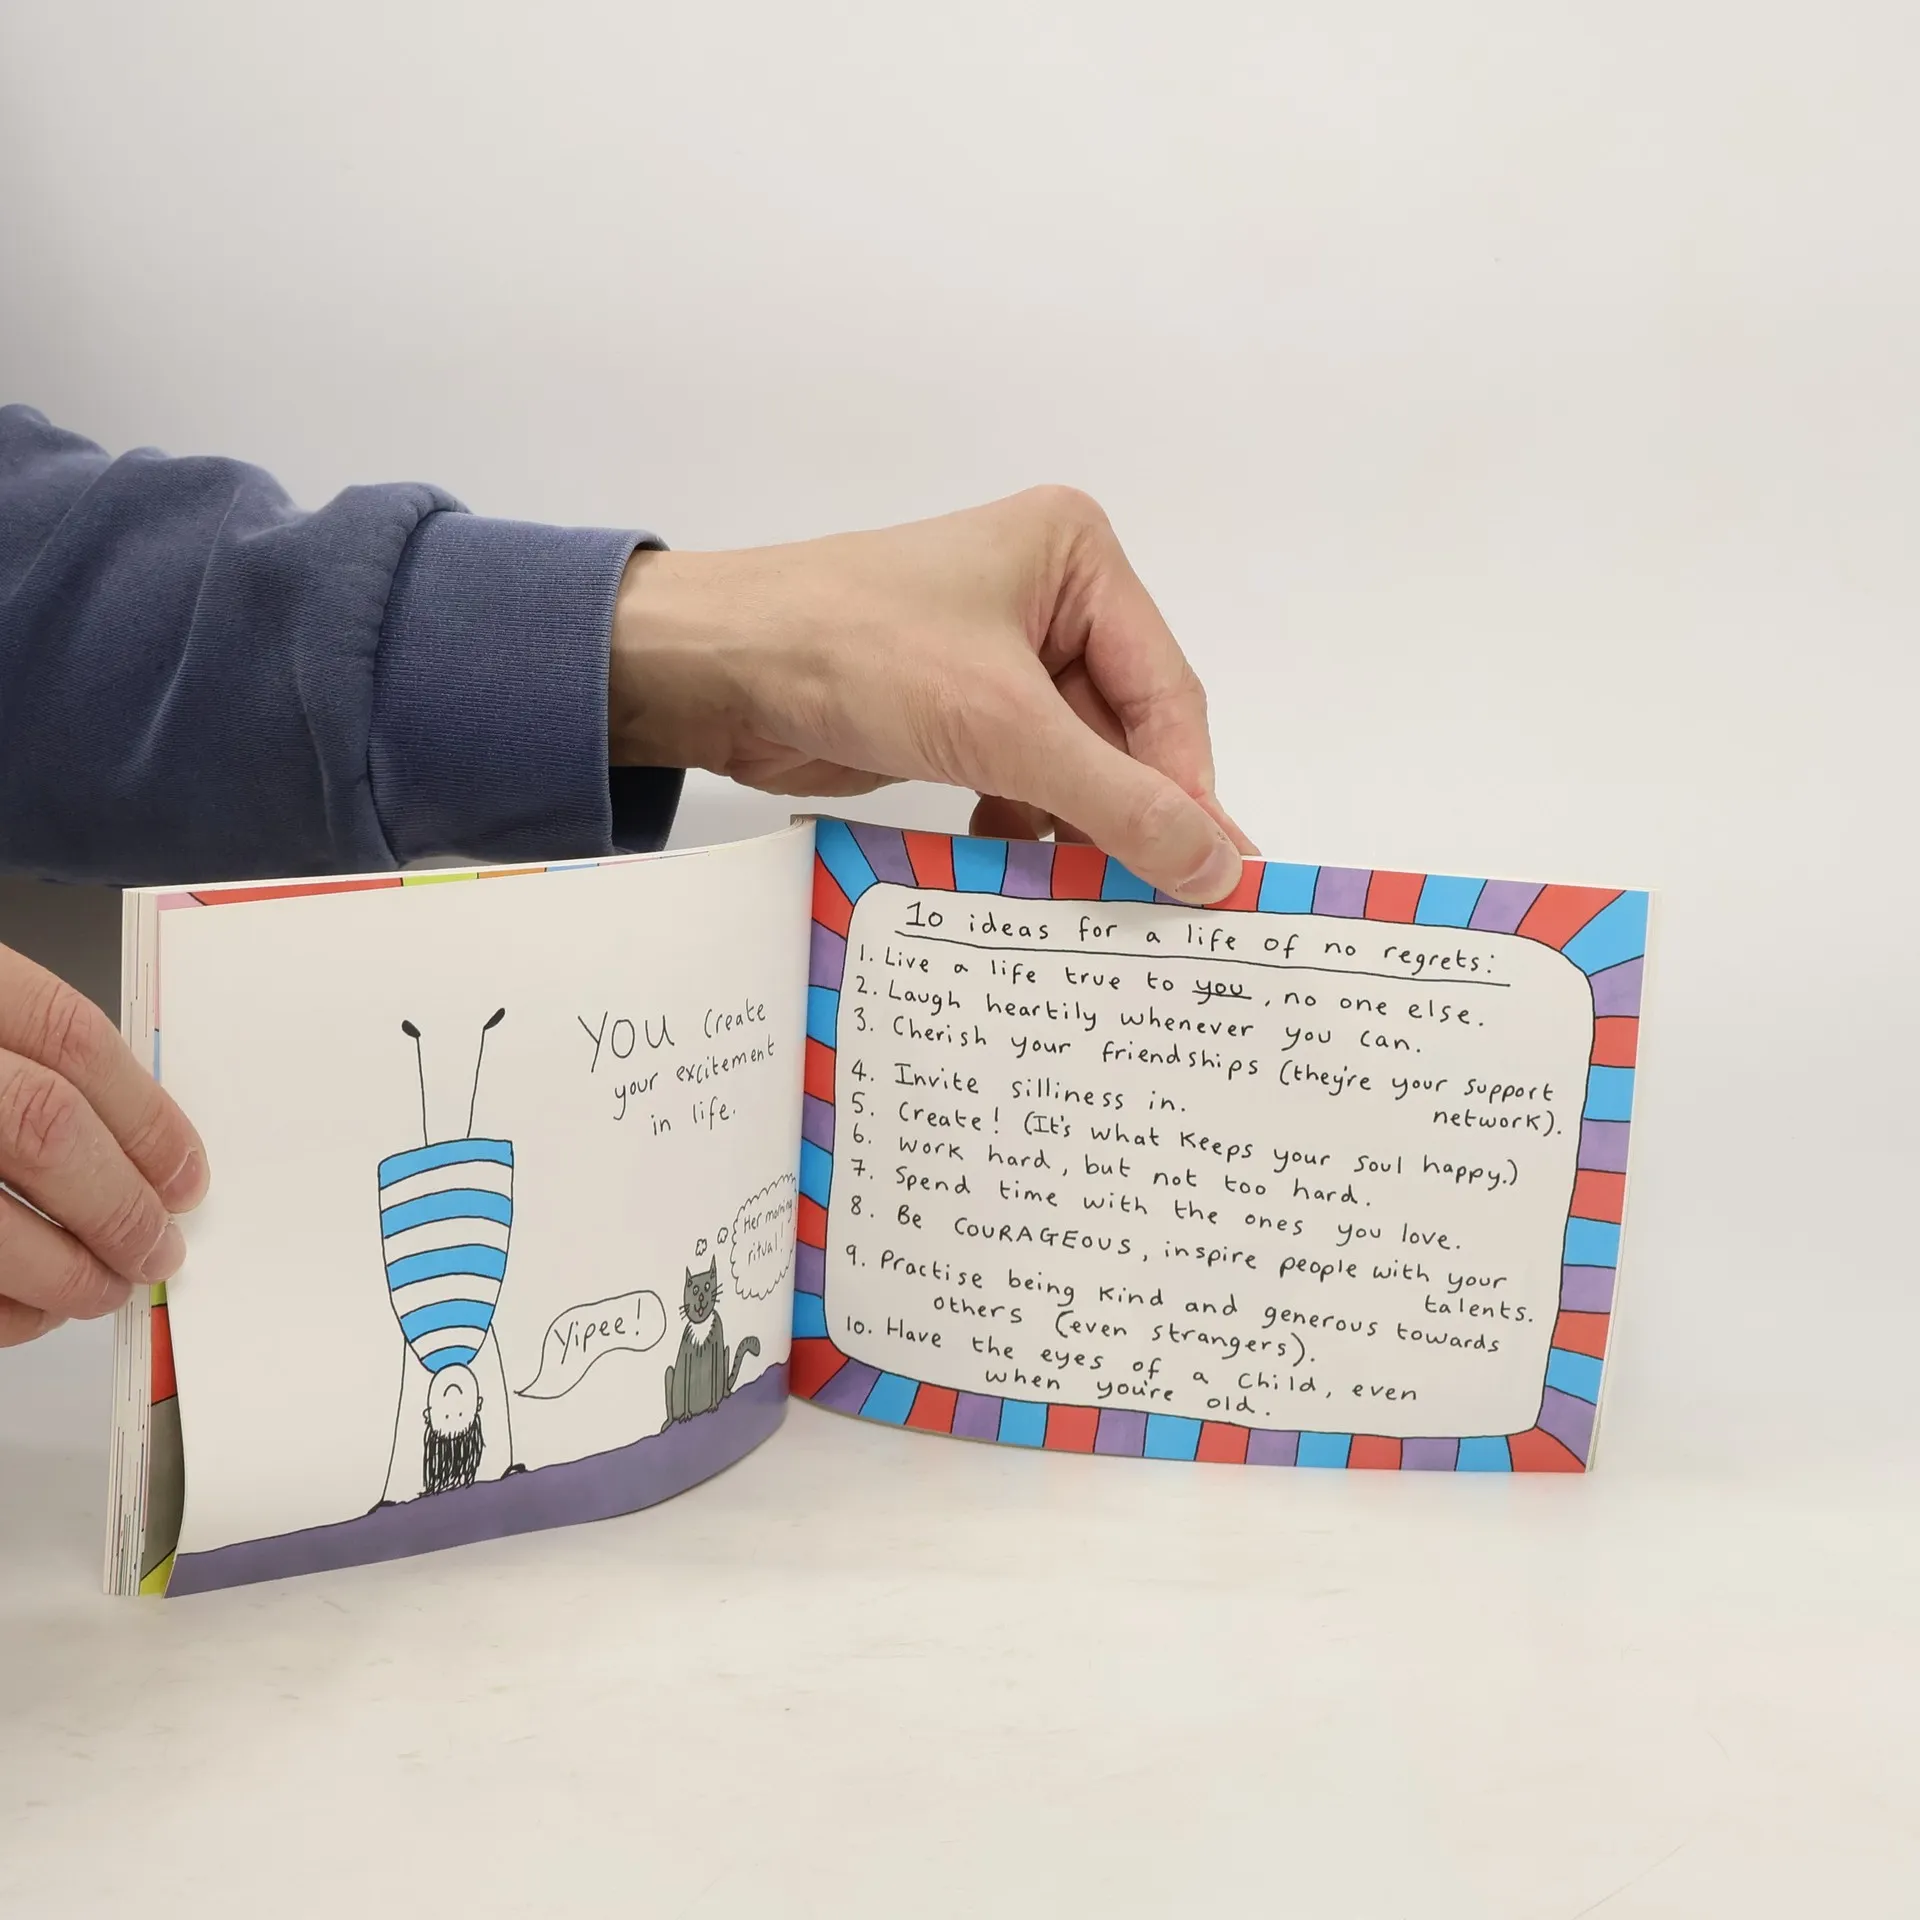 YOU create
your excitement
in life.
Her morning
ritual!
Yipee!
10 ideas for a life of no regrets:
1. Live a life true to you, no one else.
2. Laugh heartily whenever you can.
3. Cherish your friendships (they're your support
network).
4. Invite silliness in.
5. Create! (It's what keeps your soul happy.)
6. Work hard, but not too hard.
7. Spend time with the ones you love.
8. Be COURAGEOUS, inspire people with your
talents.
9. Practise being kind and generous towards
others (even strangers).
10. Have the eyes of a child, even
when you're old.